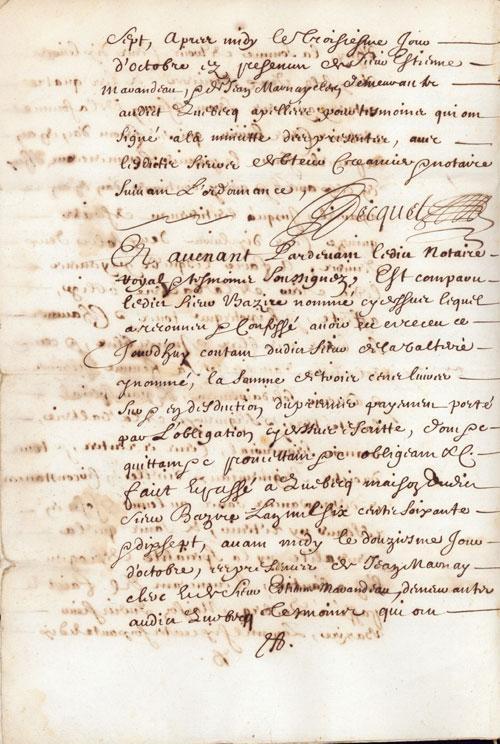 Sept, Apres midy le troisiesme Jour
d'octobre en presence de Sieur Estienne
Marandeau, & de Jean Marnay clerc, demeurant
audict Quebecq apellez pour tesmoins qui ont
signé a la minutte des presentes, avec
lesdits Sieurs debteur Creancier & notaire
suivant L'ordonnance,
Becquet
Et avenant Pardevant ledict Notaire
royal & tesmoins Soussignez, Est comparu
ledict Sieur Bazire nommé cy dessus lequel
a reconnu & Confessé avoir eu et receu ce
Jourd'huy contant dudict Sieur de la valterie
y nommé, la somme de trois cent livres
sur & en desduction du premier payement porté
par L'obligation cy dessus escritte, dont &c
quittant &c promettant &c obligeant &c
faict & passé a Quebecq maison dudict
Sieur Bazire Lan mil six cents soixante
& dix sept, avant midy le douziesme Jour
d'octobre, es presences de Jean Marnay
clerc & de Sieur Estienne Marandeau, demeurants
audict Quebecq tesmoins qui ont